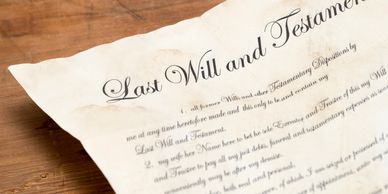 Last Will and Testament
1. all former Wills and other Testamentary Dispositions by
me at any time heretofore made and this only to be and contain my
Last Will and Testament.
2. my wife her Name here to be the sole Executor and Trustee of this my Will
and Trustee to pay all my just debts, funeral and testamentary expenses as soon
conveniently may be after my demise.
both real and personal, of which I am seized or possessed